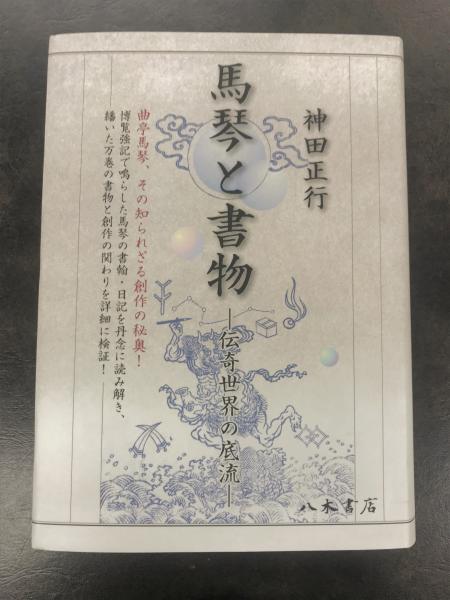 神田正行
馬琴と書物
―伝奇世界の底流―
曲亭馬琴、その知られざる創作の秘奥！
博覧強記で鳴らした馬琴の書翰・日記を丹念に読み解き、
繙いた万巻の書物と創作の関わりを詳細に検証！
八木書店